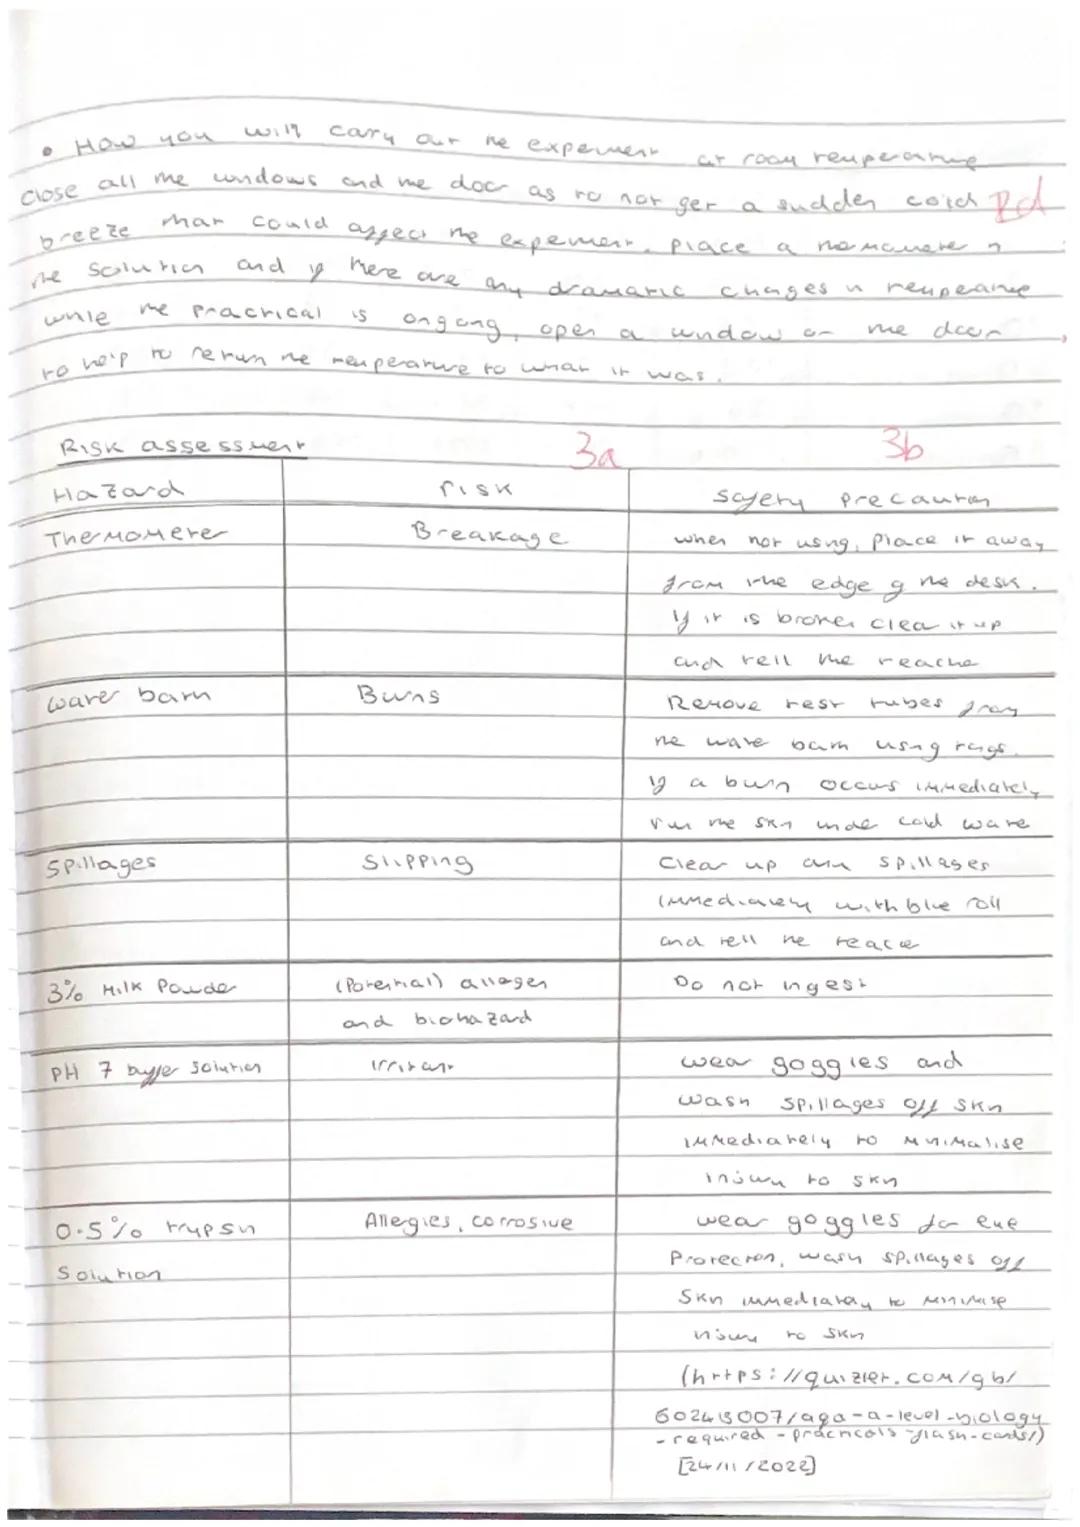 • How you will carry out the experiment at room temperature
Close all the windows and the door as to not get a sudden cold
Rd
breeze that could affect the experiment. Place a thermometer in
the solution and if there are any dramatic changes in temperature
while the practical is ongoing, open a window or the door
to help to return the temperature to what it was.
Risk assessment
3a
3b
Hazard
risk
safety precaution
Thermometer
Breakage
when not using, place it away
from the edge of the desk.
If it is broken clear it up
and tell the teacher
water bath
Burns
Remove test tubes from
the water bath using
If a burn occurs immediately
run the skin under cold water
Spillages
Slipping
Clear up any spillages
immediately with blue roll
and tell the teacher
3% Milk Powder
(Potential) allergen
and biohazard
Do not ingest
PH 7 buffer solution
irritant
wear goggles and
wash spillages off skin
immediately to minimalise
injury to skin
0.5% trypsin
Solution
Allergies, corrosive
wear goggles for eye
Protection, wash spillages off
Skin immediately to minimise
injury to skin
(https://quizlet.com/gb/
602413007/aqa-a-level-biology
-required-practicals-flash-cards/)
[24/11/2022]